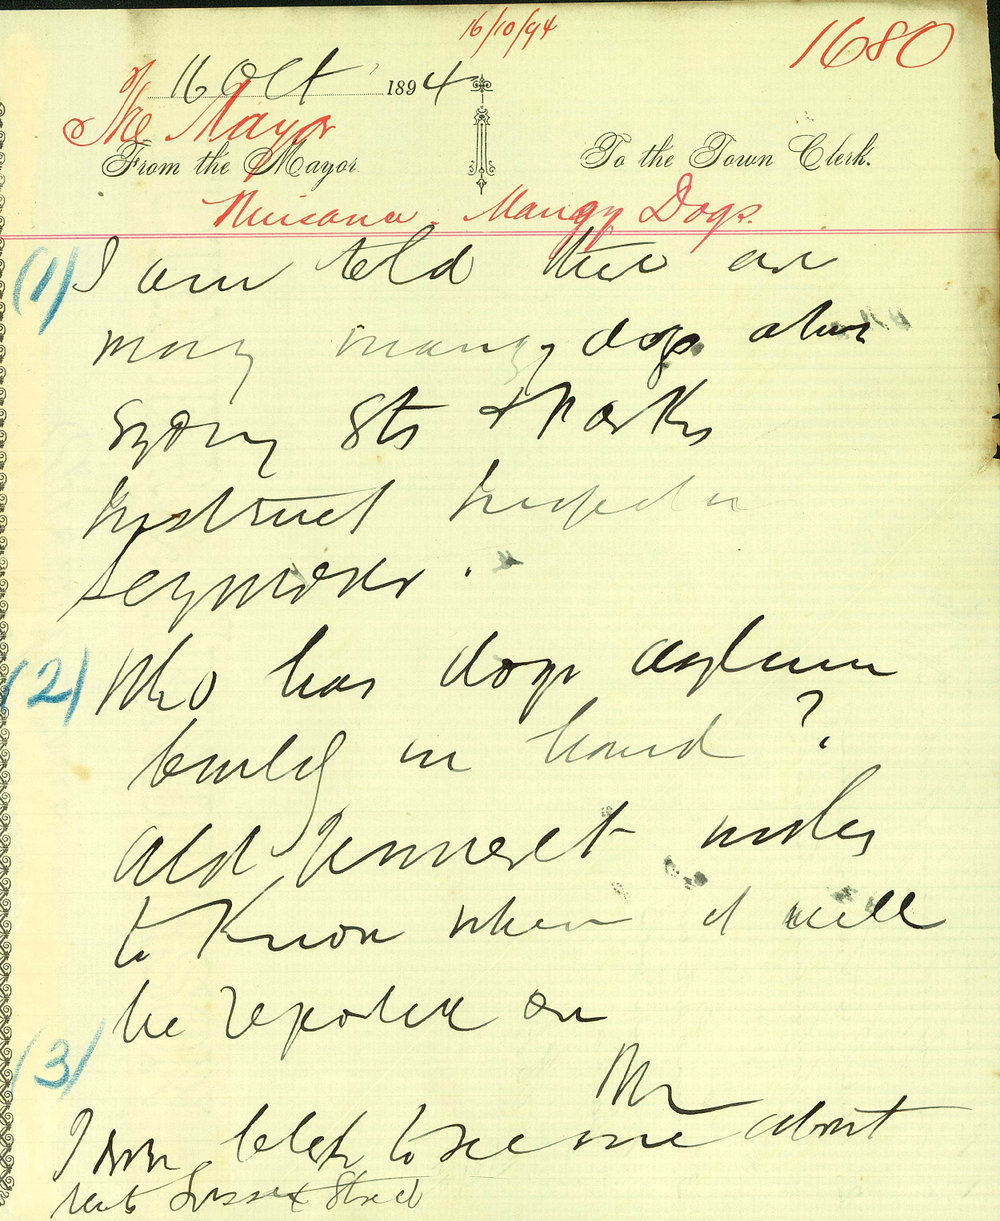 16/10/94
1680
16 Oct 1894
The Mayor
From the Mayor
To the Town Clerk.
Nuisance. Mangy Dogs.
(1) I am told there are
many mangy dogs about
Sydney Sts & Parks
Instruct Inspector
Seymour.
(2) Who has dogs asylum
in hand?
Ald Jennett wishes
to know when it will
be reported on
(3)
to see me about
Sussex Street